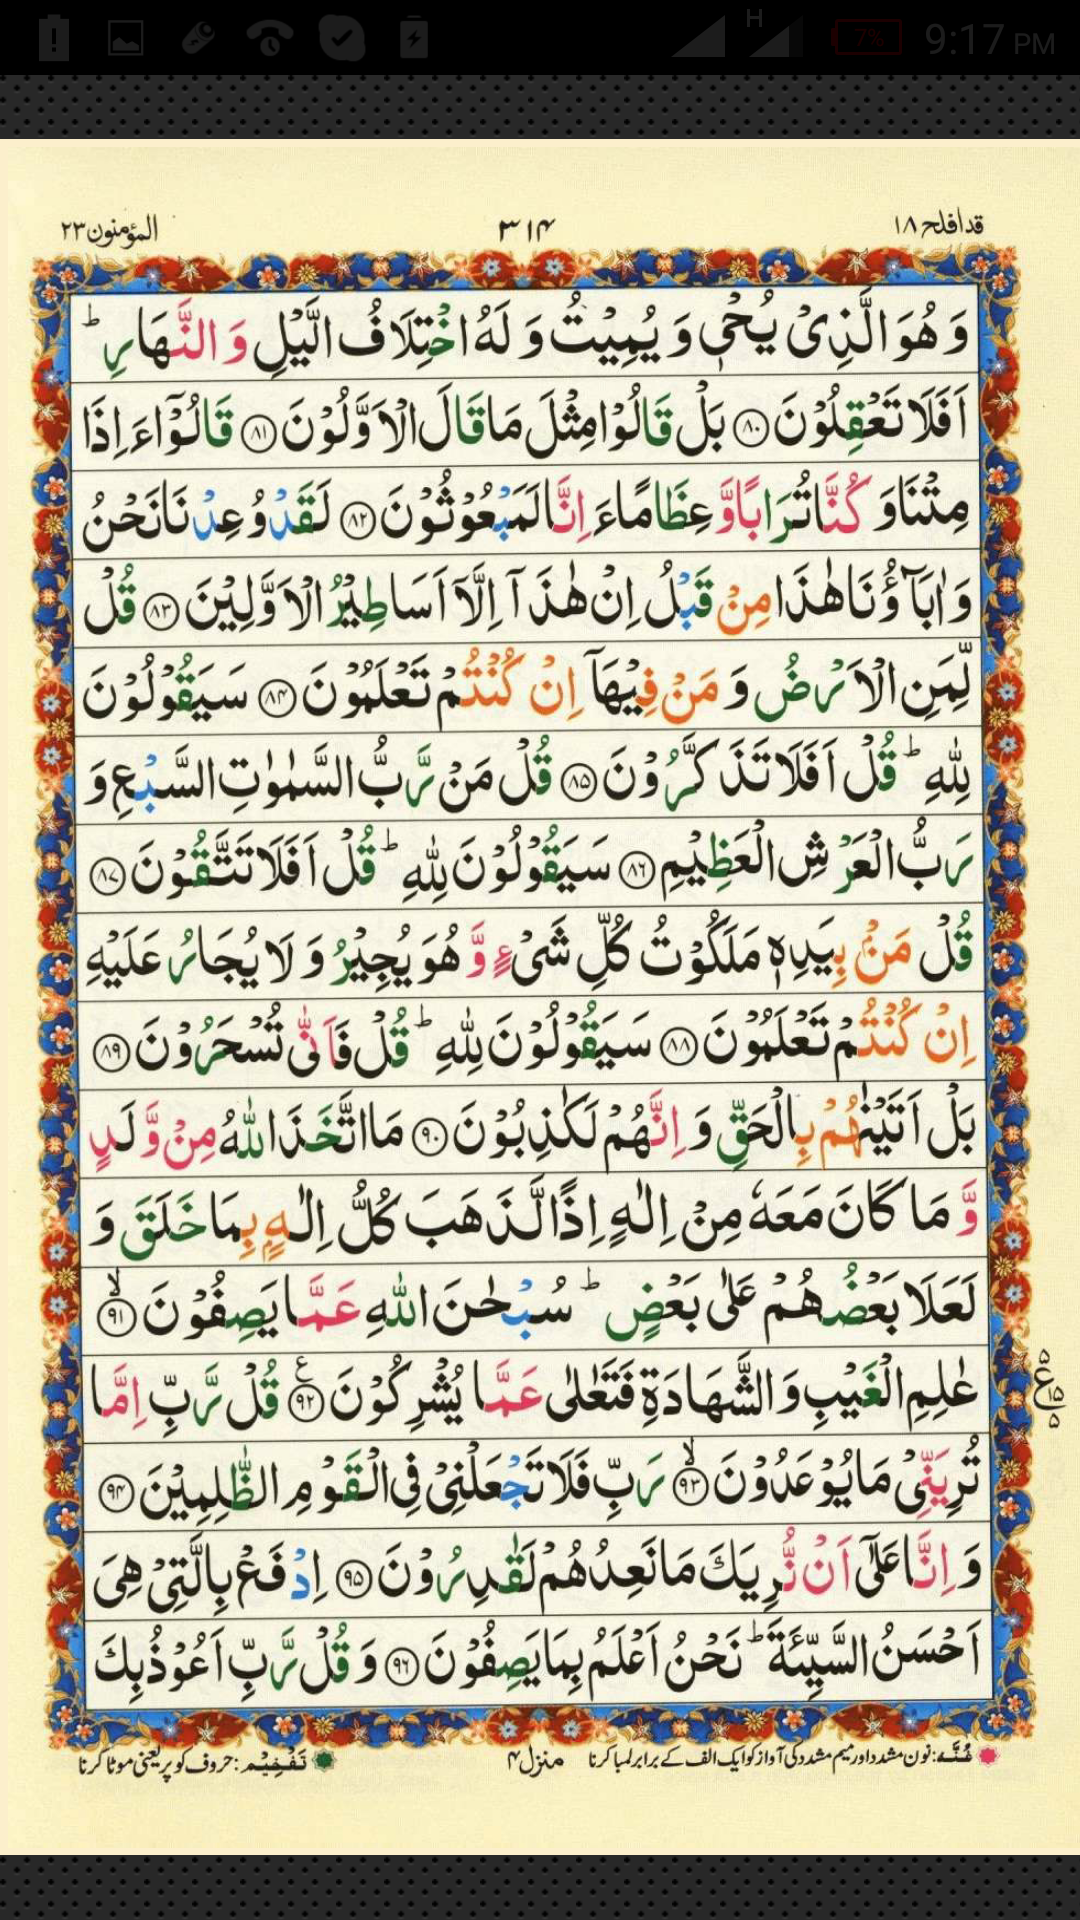 H 7% 9:17 PM
قد افلح ۱۸ ۳۱۴ المؤمنون ۲۳
وَ هُوَ الَّذِیْ یُحْیٖ وَ یُمِیْتُ وَ لَهُ اخْتِلَافُ الَّیْلِ وَ النَّهَارِ ؕ
اَفَلَا تَعْقِلُوْنَ ﴿۸۰﴾ بَلْ قَالُوْا مِثْلَ مَا قَالَ الْاَوَّلُوْنَ ﴿۸۱﴾ قَالُوْۤا ءَ اِذَا
مِتْنَا وَ كُنَّا تُرَابًا وَّ عِظَامًا ءَ اِنَّا لَمَبْعُوْثُوْنَ ﴿۸۲﴾ لَقَدْ وُعِدْنَا نَحْنُ
وَ اٰبَآؤُنَا هٰذَا مِنْ قَبْلُ اِنْ هٰذَاۤ اِلَّاۤ اَسَاطِیْرُ الْاَوَّلِیْنَ ﴿۸۳﴾ قُلْ
لِّمَنِ الْاَرْضُ وَ مَنْ فِیْهَاۤ اِنْ كُنْتُمْ تَعْلَمُوْنَ ﴿۸۴﴾ سَیَقُوْلُوْنَ
لِلّٰهِ ؕ قُلْ اَفَلَا تَذَكَّرُوْنَ ﴿۸۵﴾ قُلْ مَنْ رَّبُّ السَّمٰوٰتِ السَّبْعِ وَ
رَبُّ الْعَرْشِ الْعَظِیْمِ ﴿۸۶﴾ سَیَقُوْلُوْنَ لِلّٰهِ ؕ قُلْ اَفَلَا تَتَّقُوْنَ ﴿۸۷﴾
قُلْ مَنْۢ بِیَدِهٖ مَلَكُوْتُ كُلِّ شَیْءٍ وَّ هُوَ یُجِیْرُ وَ لَا یُجَارُ عَلَیْهِ
اِنْ كُنْتُمْ تَعْلَمُوْنَ ﴿۸۸﴾ سَیَقُوْلُوْنَ لِلّٰهِ ؕ قُلْ فَاَنّٰی تُسْحَرُوْنَ ﴿۸۹﴾
بَلْ اَتَیْنٰهُمْ بِالْحَقِّ وَ اِنَّهُمْ لَكٰذِبُوْنَ ﴿۹۰﴾ مَا اتَّخَذَ اللّٰهُ مِنْ وَّلَدٍ
وَّ مَا كَانَ مَعَهٗ مِنْ اِلٰهٍ اِذًا لَّذَهَبَ كُلُّ اِلٰهٍۭ بِمَا خَلَقَ وَ
لَعَلَا بَعْضُهُمْ عَلٰی بَعْضٍ ؕ سُبْحٰنَ اللّٰهِ عَمَّا یَصِفُوْنَ ﴿ۙ۹۱﴾
عٰلِمِ الْغَیْبِ وَ الشَّهَادَةِ فَتَعٰلٰی عَمَّا یُشْرِكُوْنَ ﴿۹۲﴾ قُلْ رَّبِّ اِمَّا
ع ۵ ۱۵ ۵
تُرِیَنِّیْ مَا یُوْعَدُوْنَ ﴿ۙ۹۳﴾ رَبِّ فَلَا تَجْعَلْنِیْ فِی الْقَوْمِ الظّٰلِمِیْنَ ﴿۹۴﴾
وَ اِنَّا عَلٰۤی اَنْ نُّرِیَكَ مَا نَعِدُهُمْ لَقٰدِرُوْنَ ﴿۹۵﴾ اِدْفَعْ بِالَّتِیْ هِیَ
اَحْسَنُ السَّیِّئَةَ ؕ نَحْنُ اَعْلَمُ بِمَا یَصِفُوْنَ ﴿۹۶﴾ وَ قُلْ رَّبِّ اَعُوْذُ بِكَ
غُنَّہ: نون مشدد اور میم مشدد کی آواز کو ایک الف کے برابر لمبا کرنا منزل ۴ تَفْخِیْم: حروف کو پُر یعنی موٹا کرنا